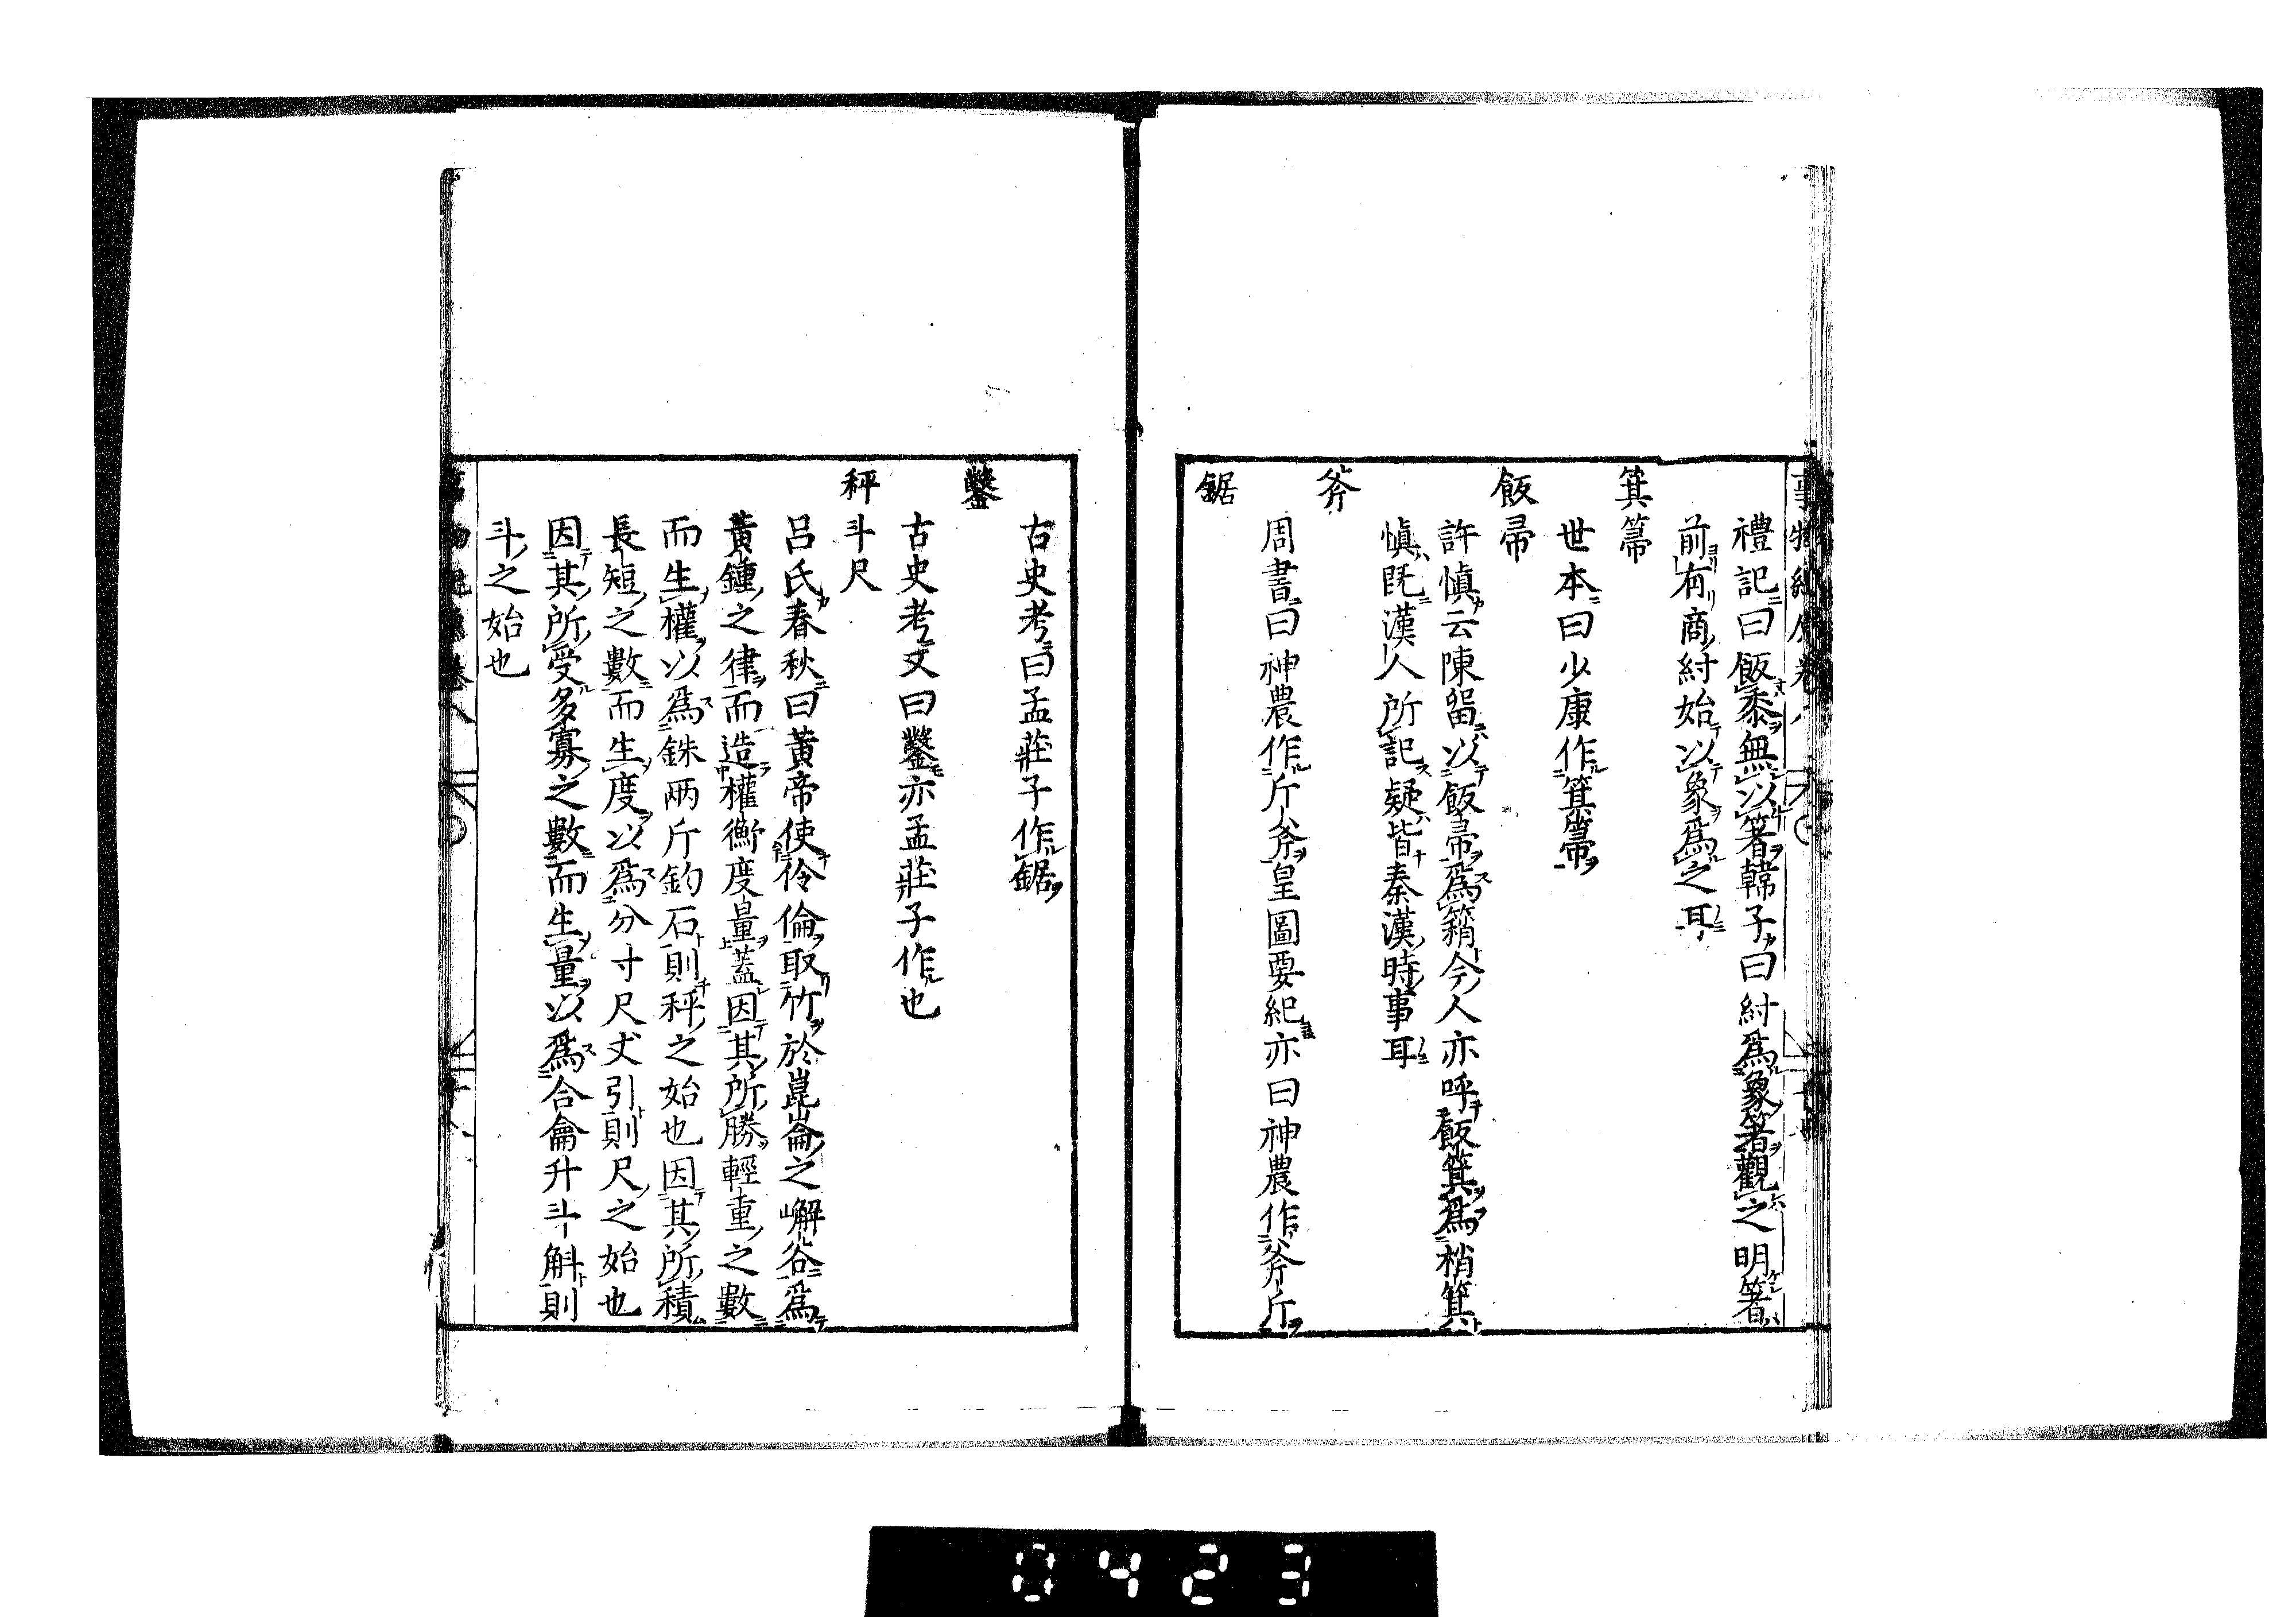 禮記曰飯黍無以箸韓子曰紂爲象箸觀之明箸
前有商紂始以象爲之耳
箕箒
世本曰少康作箕箒
飯帚
許愼云陳留以飯帚爲䈰今人亦呼飯箕爲梢箕
愼既漢人所記疑皆秦漢時事耳
斧
周書曰神農作斤斧皇圖要紀亦曰神農作斧斤
鋸
古史考曰孟莊子作鋸
鑿
古史考又曰鑿亦孟莊子作也
秤斗尺
呂氏春秋曰黃帝使伶倫取竹於崑崙之嶰谷爲
黃鍾之律而造權衡度量蓋因其所勝輕重之數
而生權以爲銖兩斤鈞石則秤之始也因其所積
長短之數而生度以爲分寸尺丈引則尺之始也
因其所受多寡之數而生量以爲合龠升斗斛則
斗之始也
0423